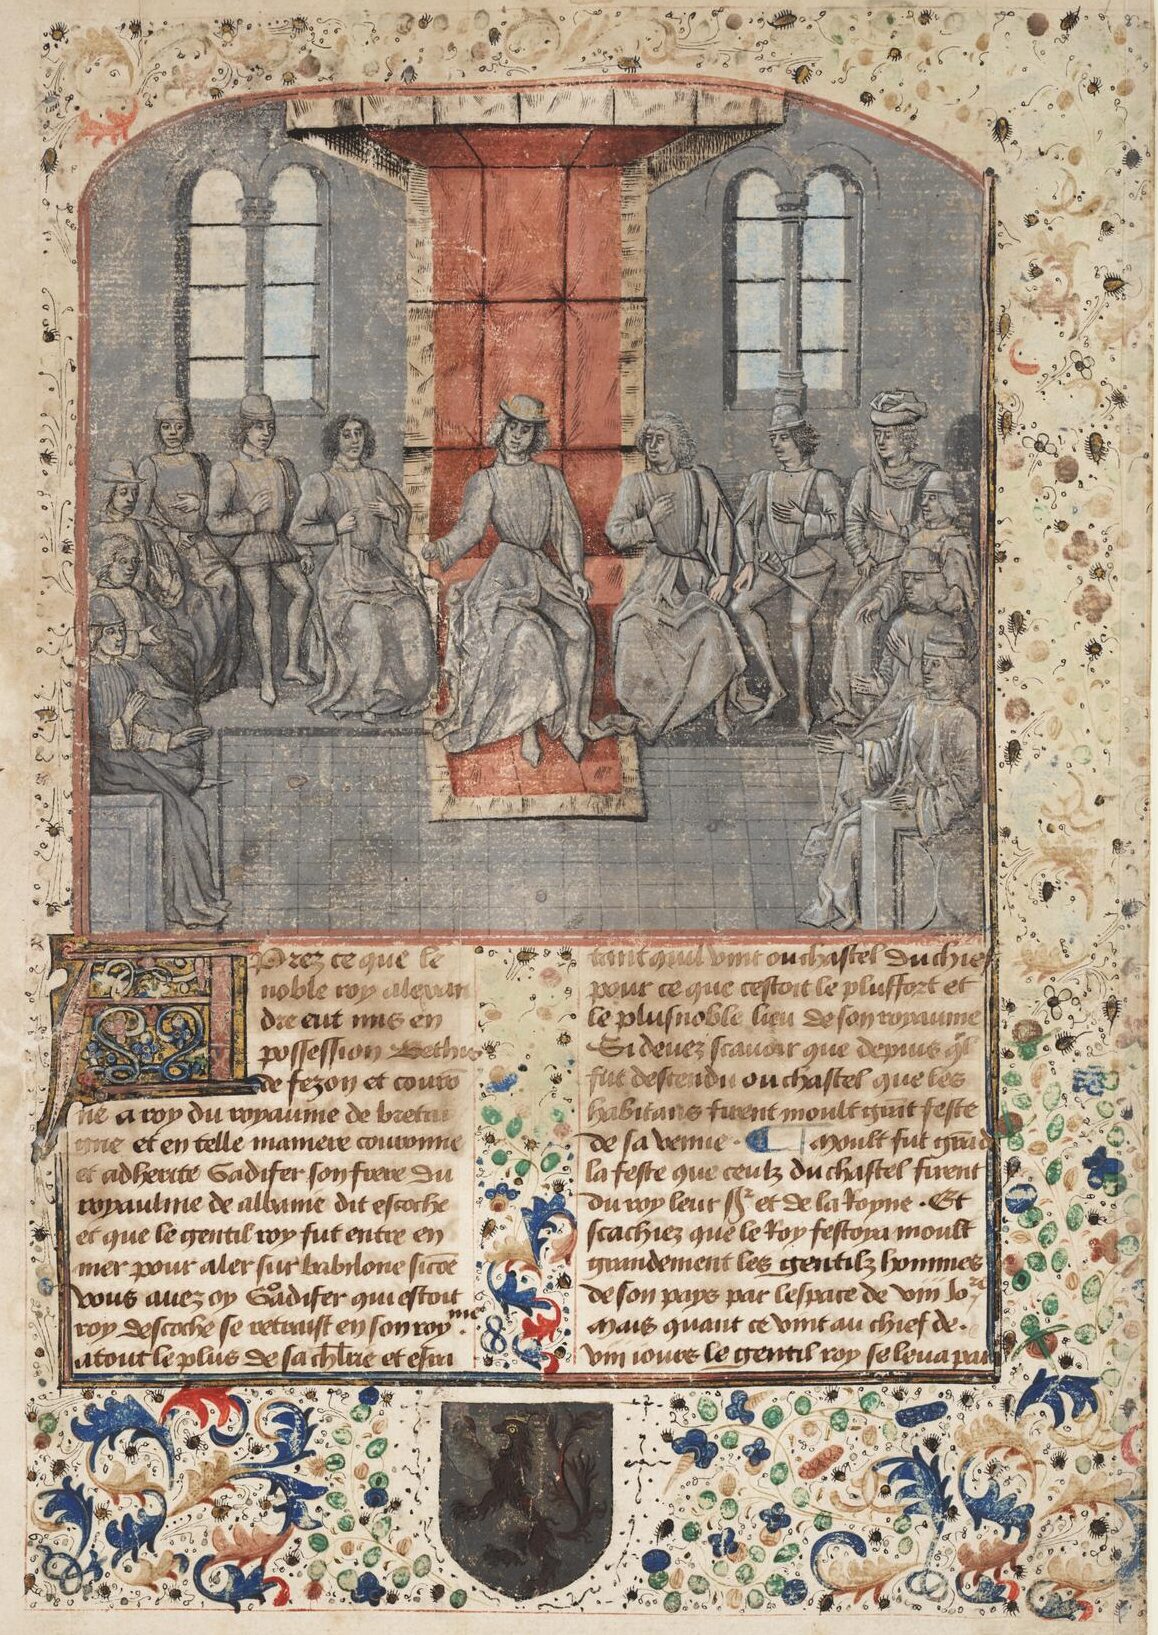 Aprez ce que le
noble roy alexan
dre eut mis en
possession Bethis
de fezon et couro
ne a roy du royaume de bretai
gne et en telle maniere couronne
et adherite Gadifer son frere du
royaulme de albanie dit escoche
et que le gentil roy fut entre en
mer pour aler sur babilone sicoe
vous auez oy Gadifer qui estoit
roy descoche se retraist en son roy me
atout le plus de sa chlrie et
tant quil vint ou chastel du chief
pour ce que cestoit le plusfort et
le plus noble lieu de son royaume
Si deuez scauoir que depuis ql
fut descendu ou chastel que les
habitans firent moult grant feste
de sa venue. Moult fut grand
la feste que ceulz du chastel firent
du roy leur sr et de la Royne. Et
scachiez que le Roy festoya moult
grandement les gentilz hommes
de son pays par lespace de viii Jo rs
Mais quant ce vint au chief de.
viii iours le gentil roy se leua par